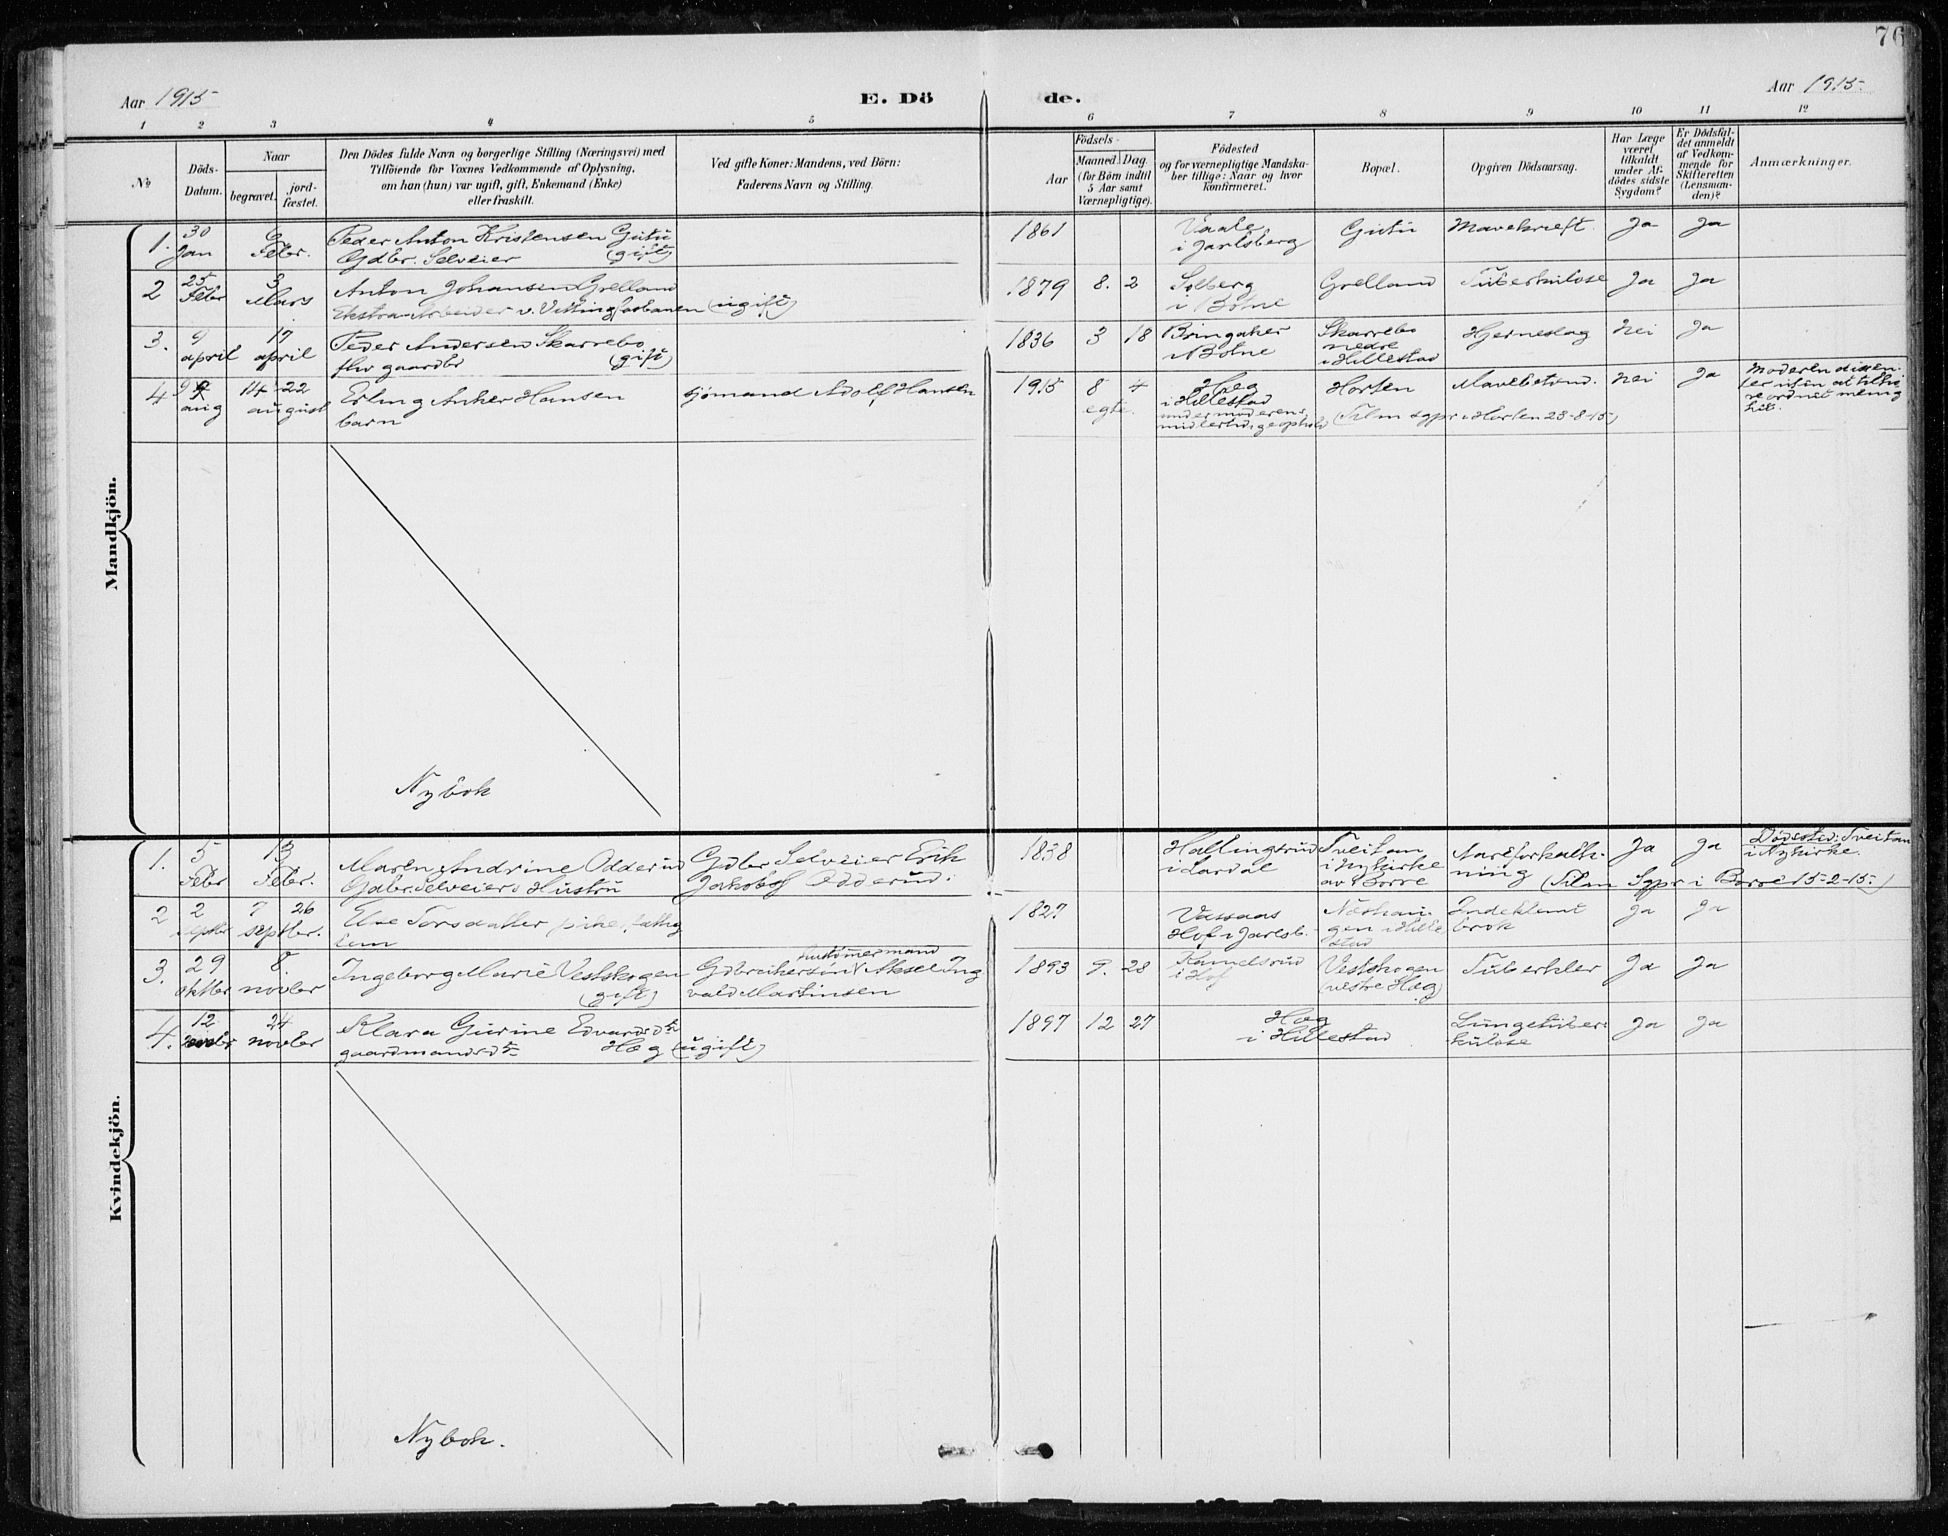 76
Aar 1915
E. Dö de.
Aar 1915
1 2 3 4 5 6 7 8 9 10 11 12
No
Döds-Datum.
Naar
begravet. jord-fæstet.
Den Dödes fulde Navn og borgerlige Stilling (Næringsvei) med
Tilföiende for Voxnes Vedkommende af Oplysning,
om han (hun) var ugift, gift, Enkemand (Enke)
eller fraskilt.
Ved gifte Koner: Mandens, ved Börn:
Faderens Navn og Stilling.
Födsels-
Aar
Maaned. Dag.
(for Börn indtil
5 Aar samt
Værnepligtige).
Födested
og for værnepligtige Mandska-
ber tillige: Naar og hvor
konfirmeret.
Bopæl.
Opgiven Dödsaarsag.
Har Læge
været
tilkaldt
under Af-
dödes sidste
Sygdom?
Er Dödsfal-
det anmeldt
af Vedkom-
mende for
Skifteretten
(Lensman-
den)?
Anmærkninger.
Mandkjön.
1. 30 Jan Febr. Peder Anton Kristensen Gutu 1861 Vaale Gutu Mavekræft Ja Ja
Gdbr. Selveier (gift) i Jarlsberg
2 25 Febr 3 Mars Anton Johansen Grelland 1879 8. 2 Solberg Grelland Tuberkulose Ja Ja
Ekstra-Arbeider v. Vittingfosbanen (ugift) i Botne
3. 9 april 17 april Peder Andersen Skarrebo 1836 3 18 Bringaker Skarrebo Hjerneslag nei Ja
flv gaardbr (gift) i Botne nedre
i Hillestad
4 9 aug 14 22 august Erling Anker Hansen Sjömand Adolf Hansen 1915 8 4 Hæg Horten Mavebetænd. nei Ja Moderen dissen-
barn egte. i Hillestad ter uten at tilhö
under moderens re ordnet menig
midlertidige ophold (Tilm sgpr i Horten 28-8-15) het.
Nybok
Kvindekjön.
1. 5 Febr 13 Febr. Maren Andrine Odderud Gdbr Selveier Erik 1838 Hallingsrud Tveitan Aareforkalk- Ja Ja Dödssted: Tveitan
Gdbr Selveiers Hustru Jakobsø Odderud. i Lardal i Nykirke ning i Nykirke.
av Borre (Tilm Sgpr i Borre 15-2-15.)
2 2 septbr 7 26 septbr. Else Torsdatter pike, fattig 1827 Vassaas Næshau- Indeklemt Ja Ja
lem Hof i Jarlsb. gen i Hille brok
stad
3. 29 oktbr 8 novbr Ingeborg Marie Vestskogen Gdbreikersön tømmermand Aksel Ing 1893 9. 28 Kamelsrud Vestskogen Tuberkler Ja Ja
(gift) vald Martinsen i Hof (vestre Hæg)
4. 12 novbr 24 novbr Klara Gurine Edvardsdtr 1897 12 27 Hæg Lungetuber- Ja Ja
gaardmandsdtr Hæg (ugift) i Hillestad kulose
Nybok.